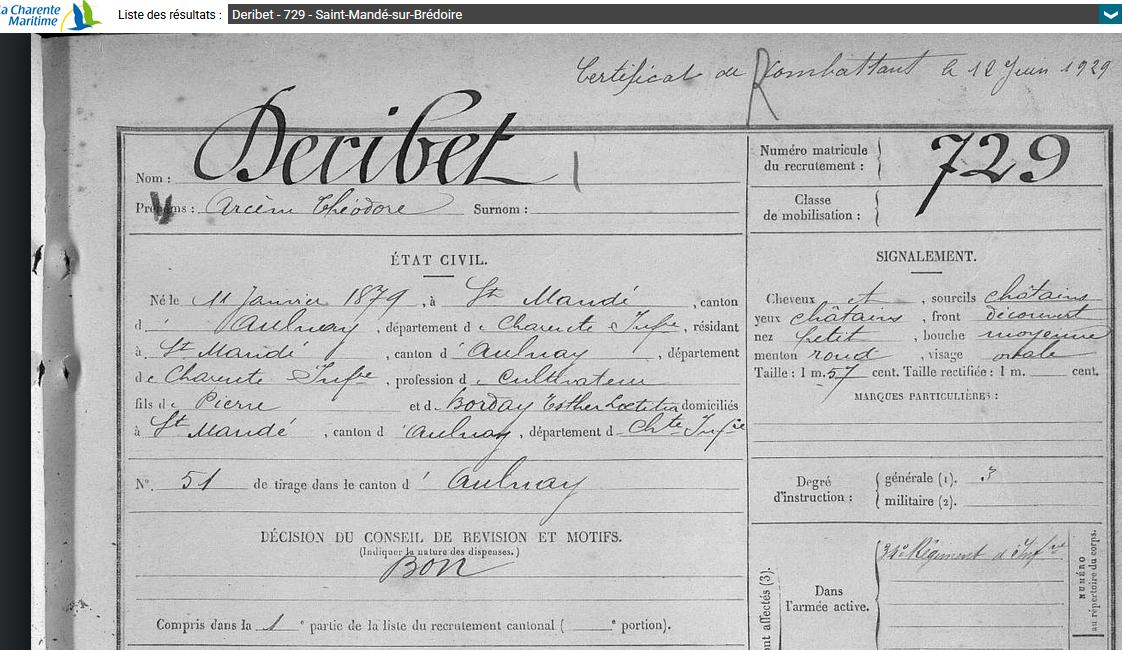 La Charente
Maritime
Liste des résultats : Deribet - 729 - Saint-Mandé-sur-Brédoire
Certificat de Combattant le 12 Juin 1929
Nom : Deribet
Prénoms : Arcène Théodore Surnom :
ÉTAT CIVIL.
Né le 11 Janvier 1879, à St Mandé, canton
d' Aulnay, département de Charente Infre, résidant
à St Mandé, canton d'Aulnay, département
de Charente Infre, profession de Cultivateur
fils de Pierre et de Borday Esther Lœtitia domiciliés
à St Mandé, canton d'Aulnay, département d Chte Infre
No. 51 de tirage dans le canton d'Aulnay
DÉCISION DU CONSEIL DE REVISION ET MOTIFS.
(Indiquer la nature des dispenses.)
Bon
Compris dans la 1e partie de la liste du recrutement cantonal ( e portion).
Numéro matricule
du recrutement : 729
Classe
de mobilisation :
SIGNALEMENT.
Cheveux et, sourcils châtains
yeux châtains, front découvert
nez petit, bouche moyenne
menton rond, visage ovale
Taille : 1 m. 57 cent. Taille rectifiée : 1 m. cent.
MARQUES PARTICULIÈRES :
Degré
d'instruction :
générale (1). 3
militaire (2).
Dans
l'armée active.
34e Régiment d'Infrie
NUMÉRO
au répertoire du corps.
nt affectés (3).